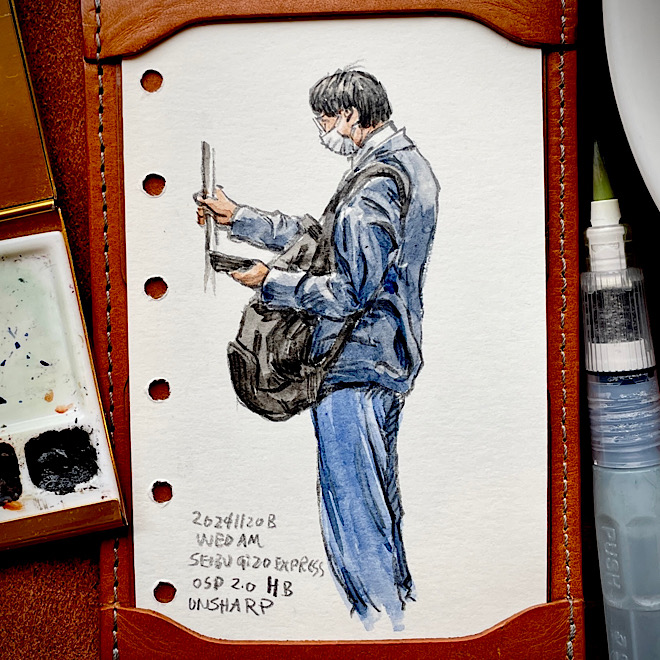 20241120B
WED AM
SEIBU 9120 EXPRESS
OSP 2.0 HB
UNSHARP
PUSH